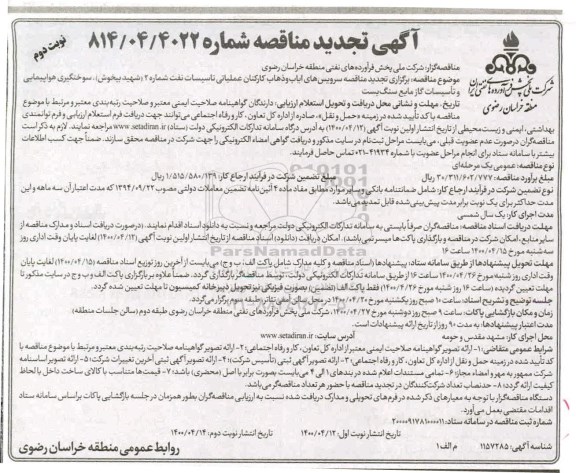 آگهی تجدید مناقصه شماره ۸۱۴/۰۴/۴۰۲۲
نوبت دوم
شرکت ملی پخش فرآورده‌های نفتی ایران
منطقه خراسان رضوی
مناقصه‌گزار: شرکت ملی پخش فرآورده‌های نفتی منطقه خراسان رضوی
موضوع مناقصه: برگزاری تجدید مناقصه سرویس‌های ایاب‌وذهاب کارکنان عملیاتی تاسیسات نفت شماره ۲ (شهید بیخوش)، سوختگیری هواپیمایی
و تأسیسات گاز مایع سنگ‌بست
تاریخ، مهلت و نشانی محل دریافت و تحویل استعلام ارزیابی: دارندگان گواهینامه صلاحیت ایمنی معتبر و صلاحیت رتبه‌بندی معتبر و مرتبط با موضوع
مناقصه با کد تأیید شده در زمینه «حمل و نقل»، صادره از اداره کل تعاون، کار و رفاه اجتماعی می‌توانند جهت دریافت فرم استعلام ارزیابی و فرم توانمندی
بهداشتی، ایمنی و زیست‌محیطی از تاریخ انتشار اولین نوبت آگهی (۱۴۰۰/۰۴/۱۲) به آدرس درگاه سامانه تدارکات الکترونیکی دولت (ستاد) www.setadiran.ir مراجعه نمایند. لازم به ذکر است
مناقصه‌گران درصورت عدم عضویت قبلی، می‌بایست مراحل ثبت‌نام در سایت مذکور و دریافت گواهی امضاء الکترونیکی را جهت شرکت در مناقصه محقق سازند. ضمناً جهت کسب اطلاعات
بیشتر با سامانه ستاد برای انجام مراحل عضویت با شماره ۴۱۹۳۴-۰۲۱ تماس حاصل فرمایند.
نوع مناقصه: عمومی یک مرحله‌ای
مبلغ برآورد مناقصه: ۳۰/۳۱۱/۶۰۲/۷۷۷ ریال مبلغ تضمین شرکت در فرآیند ارجاع کار: ۱/۵۱۵/۵۸۰/۱۳۹ ریال
نوع تضمین شرکت در فرآیند ارجاع کار: شامل ضمانتنامه بانکی و سایر موارد مطابق مفاد ماده ۴ آئین نامه تضمین معاملات دولتی مصوب ۱۳۹۴/۰۹/۲۲ که مدت اعتبار آن سه ماهه و این
مدت حداکثر برای یک نوبت برابر مدت پیش‌بینی شده قابل تمدید می‌باشد.
مدت اجرای کار: یک سال شمسی
مهلت دریافت اسناد مناقصه: مناقصه‌گران صرفاً بایستی به سامانه تدارکات الکترونیکی دولت مراجعه و نسبت به دانلود اسناد اقدام نمایند. (درصورت دریافت اسناد و مدارک مناقصه از
سایر منابع، امکان شرکت در مناقصه و بارگذاری پاکت‌ها میسر نمی‌باشد). امکان دریافت (دانلود) اسناد مناقصه از تاریخ انتشار اولین نوبت آگهی (۱۴۰۰/۰۴/۱۲) لغایت پایان وقت اداری روز
سه‌شنبه مورخ ۱۴۰۰/۰۴/۱۵ ساعت ۱۶
مهلت تحویل پیشنهادها از طریق سامانه ستاد: پیشنهادها (اسناد مناقصه و کلیه مدارک شامل پاکت الف، ب و ج) می‌بایست از آخرین روز توزیع اسناد مناقصه (۱۴۰۰/۰۴/۱۵) لغایت پایان
وقت اداری روز شنبه مورخ ۱۴۰۰/۰۴/۲۶ ساعت ۱۶ از طریق سامانه تدارکات الکترونیکی دولت، توسط مناقصه‌گر بارگذاری گردد. ضمناً علاوه بر بارگزاری پاکت الف، ب و ج در سایت مذکور تا
مهلت تعیین گردیده (۱۴۰۰/۰۴/۲۶ مورخ ساعت ۱۶) فقط پاکت الف (تضمین) بصورت فیزیکی نیز تحویل دبیرخانه کمیسیون تا مهلت تعیین شده گردد.
جلسه توضیح و تشریح اسناد: ساعت ۱۰ صبح روز یکشنبه مورخ ۱۴۰۰/۰۴/۲۰ در محل سالن آمفی تئاتر، طبقه سوم برگزار می‌گردد.
زمان و مکان بازگشایی پاکات: ساعت ۹ صبح روز دوشنبه مورخ ۱۴۰۰/۰۴/۲۷، شرکت ملی پخش فرآورده‌های نفتی منطقه خراسان رضوی طبقه دوم (سالن جلسات منطقه)
مدت اعتبار پیشنهادها: به مدت ۹۰ روز از تاریخ ارائه پیشنهادات است.
محل اجرای کار: مشهد مقدس و حومه آدرس سایت: www.setadiran.ir
شرایط عمومی متقاضی: ۱- ارائه تصویر گواهینامه صلاحیت ایمنی معتبر از اداره کل تعاون، کار و رفاه اجتماعی؛ ۲- ارائه تصویر گواهینامه صلاحیت رتبه‌بندی معتبر و مرتبط با موضوع مناقصه با
کد تأیید شده در زمینه حمل و نقل از اداره کل تعاون، کار و رفاه اجتماعی؛ ۳- ارائه تصویر آگهی ثبتی (تأسیس شرکت)؛ ۴- ارائه تصویر آگهی ثبتی آخرین تغییرات شرکت؛ ۵- ارائه تصویر اساسنامه
شرکت ممهور به مهر و امضاء مجاز؛ ۶- تمامی مستندات اعلام شده در بندهای ۱ الی ۴ می‌بایست بصورت برابر با اصل (محضری) باشد؛ ۷- قیمت‌ها متناسب با کالای ساخت داخل با لحاظ
کیفیت ارائه گردد؛ ۸- حدنصاب تعداد شرکت‌کنندگان در تجدید مناقصه با حضور هر تعداد مناقصه‌گر می‌باشد.
دستگاه مناقصه‌گزار با توجه به معیارهای ذکر شده در فرم‌های تحویلی و مدارک دریافت شده نسبت به ارزیابی مناقصه‌گران بطور همزمان در جلسه بازگشایی پاکات براساس سامانه ستاد
اقدامات مقتضی بعمل می‌آورد.
شماره ثبت مناقصه در سامانه ستاد: ۲۰۰۰۰۹۱۷۸۱۰۰۰۰۱۱
تاریخ انتشار نوبت اول: ۱۴۰۰/۰۴/۱۲ تاریخ انتشار نوبت دوم: ۱۴۰۰/۰۴/۱۴
شناسه آگهی: ۱۱۵۷۲۸۵ م الف ۱
روابط عمومی منطقه خراسان رضوی
ParsNamadData